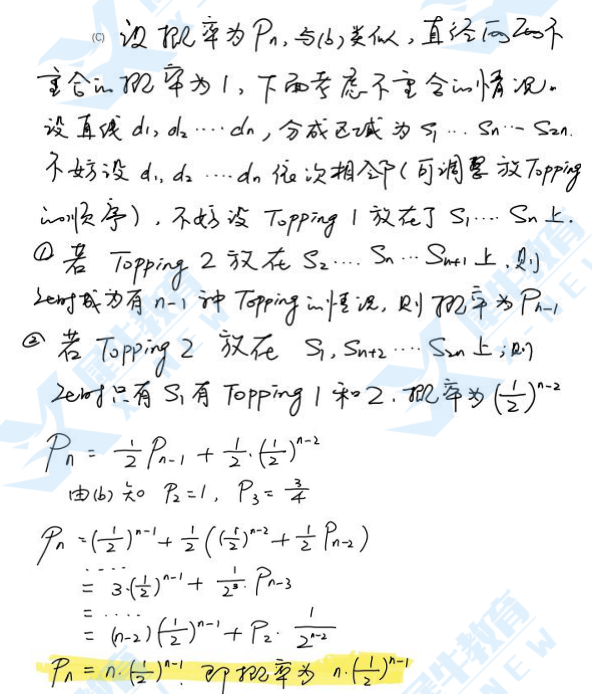 (C) 设概率为 Pn, 与(b)类似, 直径间不
重合的概率为1, 下面考虑不重合的情况.
设直线 d1, d2 ····dn, 分成区域为 S1 ··· Sn··· S2n.
不妨设 d1, d2 ····dn 依次相邻(可调整放Topping
的顺序), 不妨设 Topping 1 放在了 S1···· Sn 上.
① 若 Topping 2 放在 S2···· Sn ··· Sn+1 上, 则
Zeno时成为有 n-1 种 Topping的情况, 则概率为 Pn-1
② 若 Topping 2 放在 S1, Sn+2 ···· S2n 上, 则
Zeno时只有 S1 有 Topping 1 和 2. 概率为 (1/2)^{n-2}
Pn = 1/2 Pn-1 + 1/2·(1/2)^{n-2}
由(b)知 P2=1, P3= 3/4
Pn = (1/2)^{n-1} + 1/2((1/2)^{n-2} + 1/2 Pn-2)
····
= 3·(1/2)^{n-1} + 1/2^3 · Pn-3
= ····
= (n-2)(1/2)^{n-1} + P2 · 1/2^{n-2}
Pn = n·(1/2)^{n-1}. 即概率为 n·(1/2)^{n-1}
犀牛教育
X-NEW